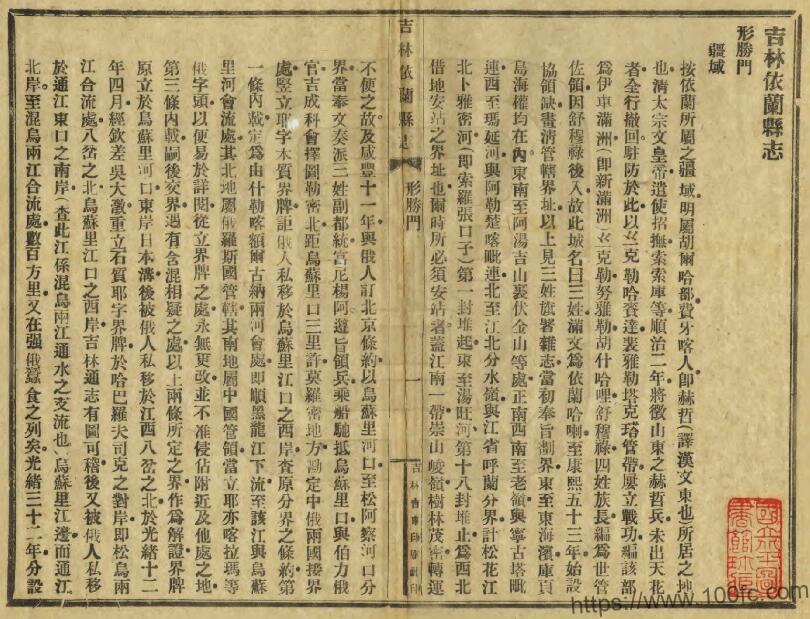 吉林依蘭縣志
形勝門
疆域
按依蘭所屬之疆域明屬胡爾哈部費牙喀人卽赫哲(譯漢文東也)所居之地
也清太宗文皇帝遣使招撫索索庫等順治二年將徵山東之赫哲兵未出天花
者全行撤回駐防於此以克勒哈賚達裴雅勒塔克珞管帶屢立戰功編該部
爲伊車滿洲(卽新滿洲)克勒努雅勒胡什哈哩舒穆祿四姓族長編爲世管
佐領因舒穆祿後入故此城名曰三姓滿文爲依蘭哈喇至康熙五十三年始設
協領缺畫淸管轄界址以上見三姓旗署雜志當初奉旨劃界東至東海濱庫頁
島海權均在內東南至阿湯吉山裏伏金山等處正南西南至老嶺與寧古塔毗
連西至瑪延河與阿勒楚喀毗連北至江北分水嶺與江省呼蘭分界計松花江
北卜雅密河(即索羅張口子)第一封堆起東至湯旺河第十八封堆止爲西北
借地安站之界址也爾時所必須安站者蓋江南一帶崇山峻嶺樹林茂密轉運
吉林依蘭縣志
形勝門
一
不便之故及咸豐十一年與俄人訂北京條約以烏蘇里河口至松阿察河口分
界當奉文奏派三姓副都統富尼楊阿遵旨領兵乘船馳抵烏蘇里口與伯力俄
官吉成科會擇圖勒密北距烏蘇里口三里許莫羅密地方勘定中俄兩國接界
處竪立耶字木質界牌詎俄人私移於烏蘇里江口之西岸査原分界之條約第
一條內載定爲由什勒喀額爾古納兩河會處即順黑龍江下流至該江與烏蘇
里河會流處其北地屬俄羅斯國管轄其南地屬中國管領當立耶亦喀拉瑪等
俄字頭以便易於詳閱從立界牌之處永無更改並不准侵佔附近及他處之地
第三條內載嗣後交界遇有含混相疑之處以上兩條所定之界作爲解證界牌
原立於烏蘇里河口東岸日本濤後被俄人私移於江西八岔之北於光緒十二
年四月經欽差吳大澂重立石質耶字界牌於哈巴羅夫司克之對岸即松烏兩
江合流處八岔之北烏蘇里江口之西岸吉林通志有圖可稽後又被俄人私移
於通江東口之南岸(査此江係混烏兩江通水之支流也)烏蘇里江邊而通江
北岸至混烏兩江合流處數百方里又在强俄蠶食之列矣光緒三十二年分設
https://www.100fc.com